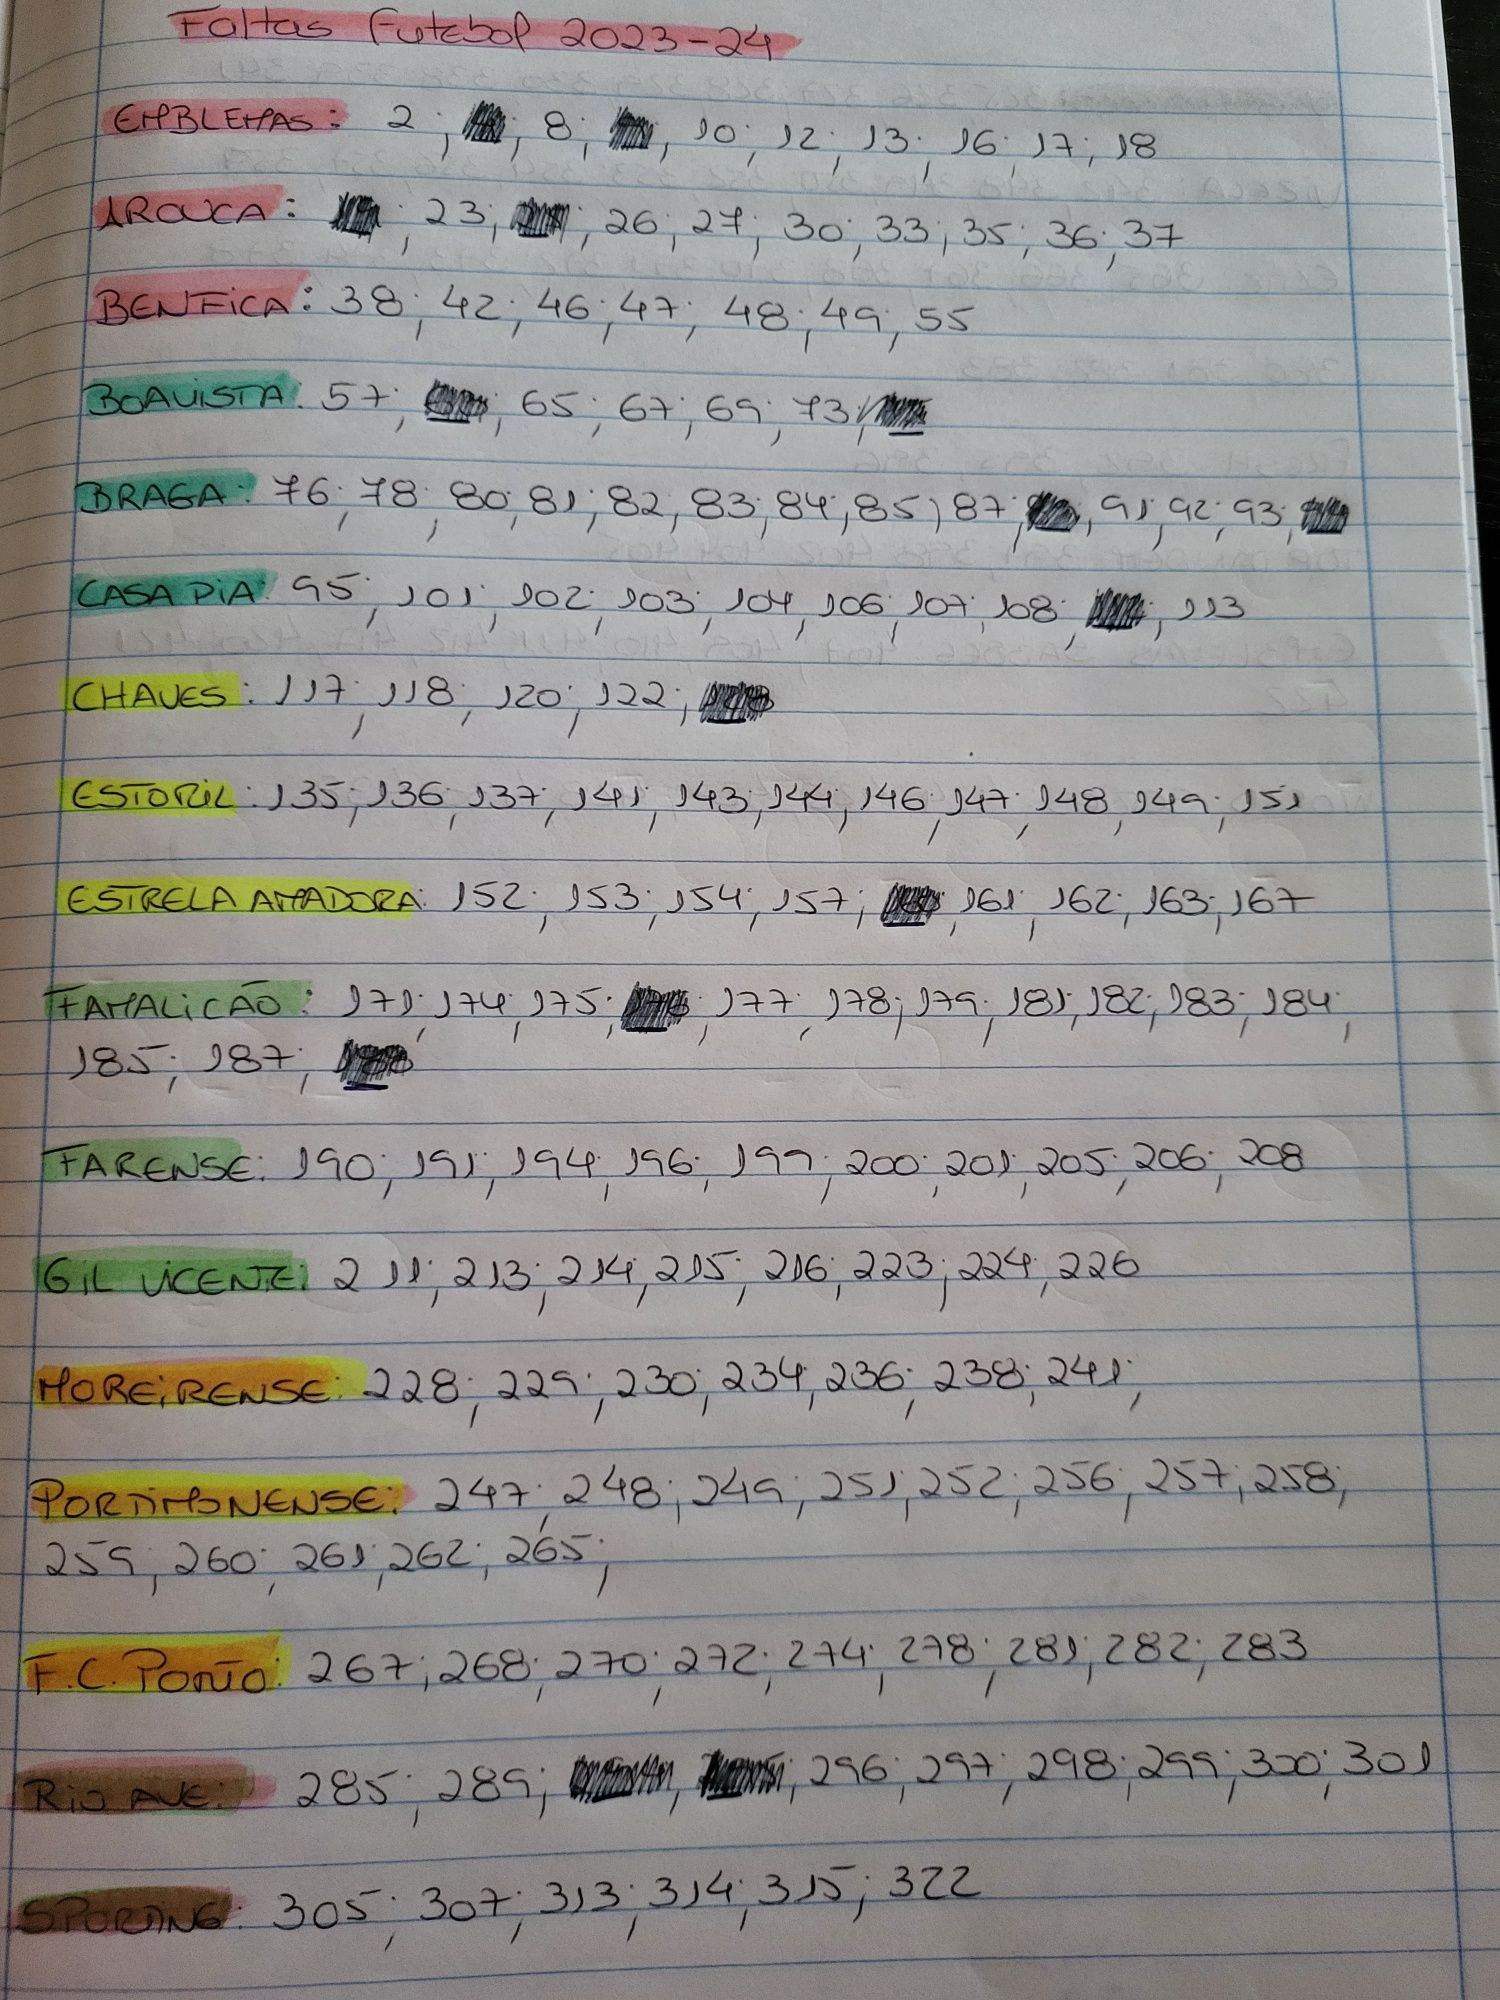 Faltas Futebol 2023-24
EMBLEMAS: 2; 8; 10; 12; 13; 16; 17; 18
AROUCA: 23; 26; 27; 30; 33; 35; 36; 37
BENFICA: 38; 42; 46; 47; 48; 49; 55
BOAVISTA: 57; 65; 67; 69; 73;
BRAGA: 76; 78; 80; 81; 82; 83; 84; 85; 87; 91; 92; 93;
CASA PIA: 95; 101; 102; 103; 104; 106; 107; 108; 113
CHAVES: 117; 118; 120; 122;
ESTORIL: 135; 136; 137; 141; 143; 144; 146; 147; 148; 149; 151
ESTRELA AMADORA: 152; 153; 154; 157; 161; 162; 163; 167
FAMALICÃO: 171; 174; 175; 177; 178; 179; 181; 182; 183; 184;
185; 187;
FARENSE: 190; 191; 194; 196; 199; 200; 201; 205; 206; 208
GIL VICENTE: 211; 213; 214; 215; 216; 223; 224; 226
MOREIRENSE: 228; 229; 230; 234; 236; 238; 241;
PORTIMONENSE: 247; 248; 249; 251; 252; 256; 257; 258;
259; 260; 261; 262; 265;
F.C. PORTO: 267; 268; 270; 272; 274; 278; 281; 282; 283
RIO AVE: 285; 289; 296; 297; 298; 299; 300; 301
SPORTING: 305; 307; 313; 314; 315; 322